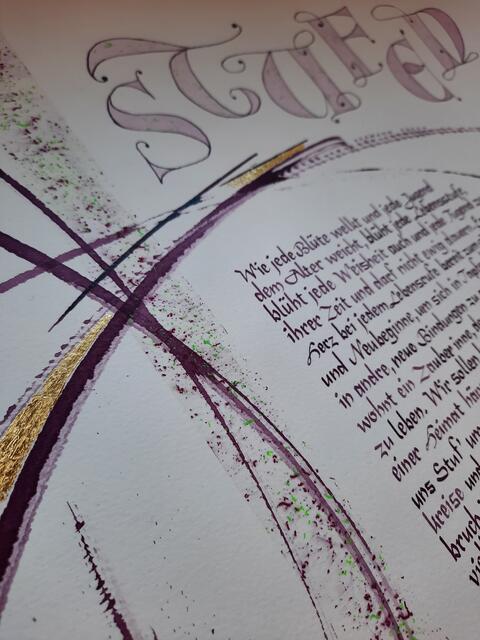 STUFEN
Wie jede Blüte welkt und jede Jugend
dem Alter weicht, blüht jede Lebensstufe
blüht jede Weisheit auch und jede Tugend
ihrer Zeit und darf nicht ewig
Herz bei jedem Lebensrufe bereit zum
und Neubeginne, um sich in
in andre, neue Bindungen zu
wohnt ein Zauber inne, der
zu leben. Wir sollen
einer Heimat hän
uns Stuf um
kreise und
bruch